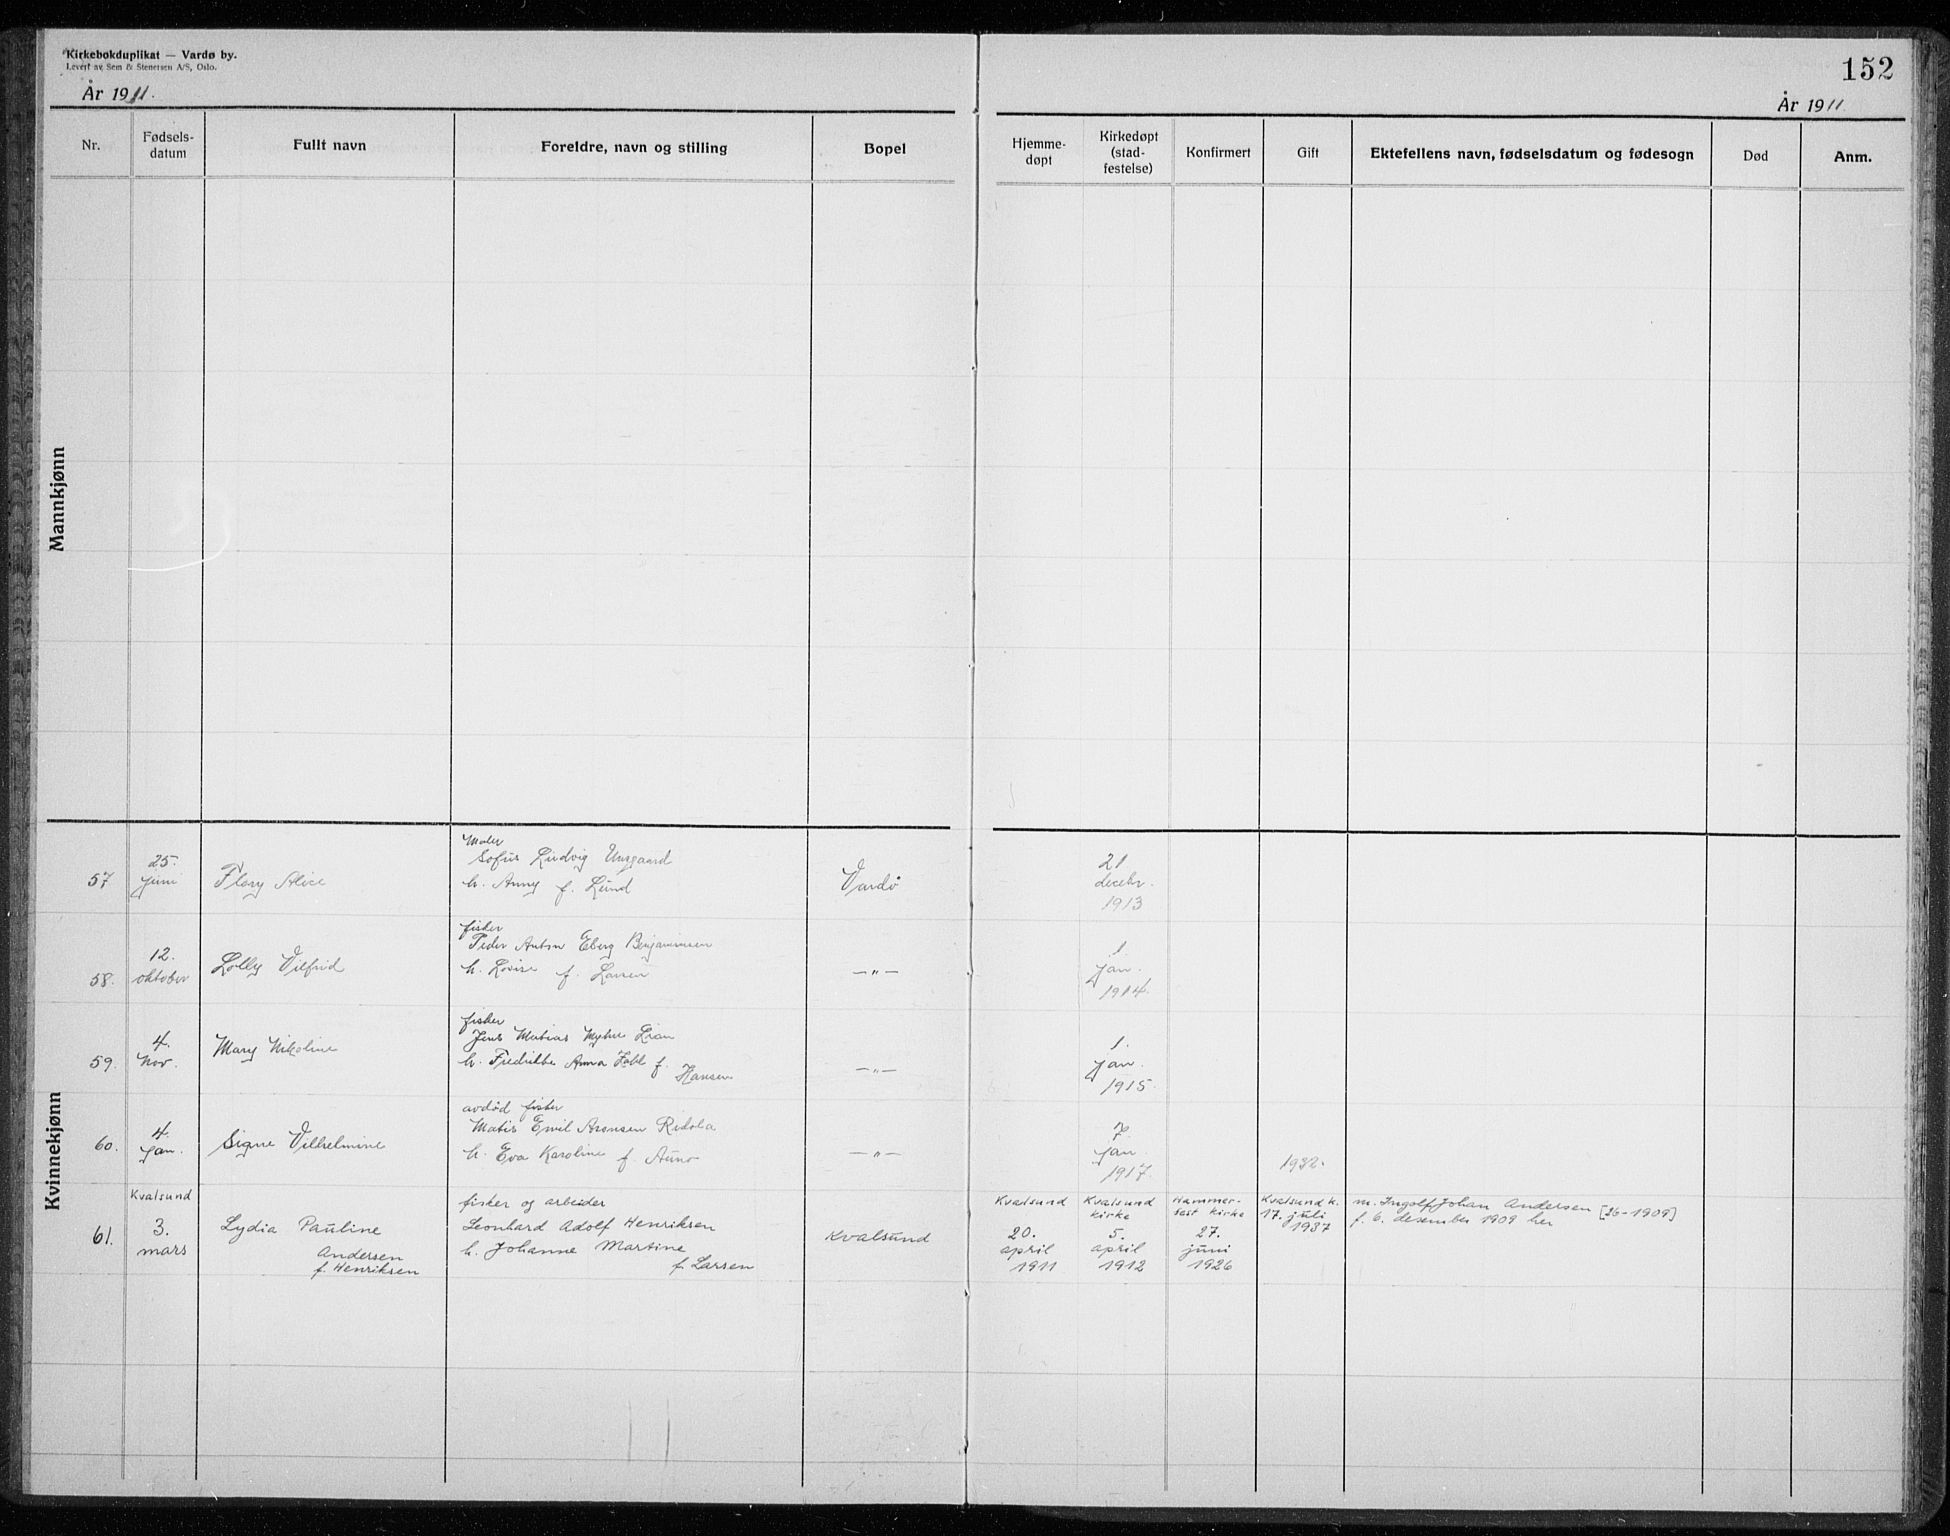 Kirkebokduplikat — Vardø by.
Levert av Sem & Stenersen A/S, Oslo.
År 1911.
152
År 1911.
Nr.
Fødsels-
datum
Fullt navn
Foreldre, navn og stilling
Bopel
Hjemme-
døpt
Kirkedøpt
(stad-
festelse)
Konfirmert
Gift
Ektefellens navn, fødselsdatum og fødesogn
Død
Anm.
Mannkjønn
Kvinnekjønn
57
25.
juni
Flory Alice
Maler
Sofus Ludvig
h. Anny f. Lund
Vardø
21
decebr.
1913
58.
12.
oktober
Lolly Vilfrid
fisker
Peder Anton Eberg Benjaminsen
h. Lovise f. Larsen
—„—
1.
jan.
1914.
59.
4.
Nov.
Mary Nikoline
fisker
Jens Matias
h. Fredrikke Anna f.
Hansen
—„—
1.
jan.
1915.
60.
4.
jan.
Signe Vilhelmine
avdød fisker
Matis Emil Aronsen Ridola
h. Eva Karoline f. Auno
—„—
7.
jan.
1917.
1932.
61.
Kvalsund
3.
mars
Lydia Pauline
Andersen
f. Henriksen
fisker og arbeider
Leonhard Adolf Henriksen
h. Johanne Martine
f. Larsen
Kvalsund
Kvalsund
20.
april
1911
Kvalsund
kirke
5.
april
1912
Hammer-
fest kirke
27.
juni
1926
Kvalsund k.
17. juli
1937
m. Ingolf Johan Andersen [26-1909]
f. 6. desember 1909 her